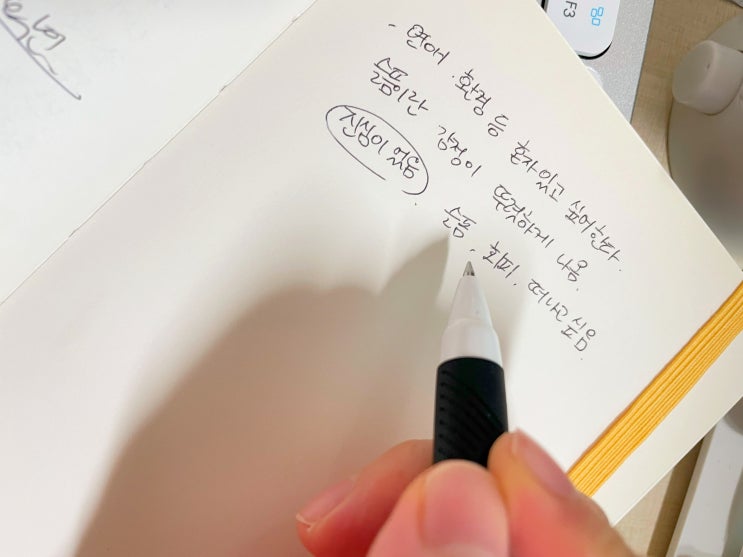 - 언어. 환경 등 혼자있고 싶어한다.
슬픔이란 감정이 뚜렷하게 나옴.
진심이 없음
슬픔 - 회피. 떠나고 싶음
F3